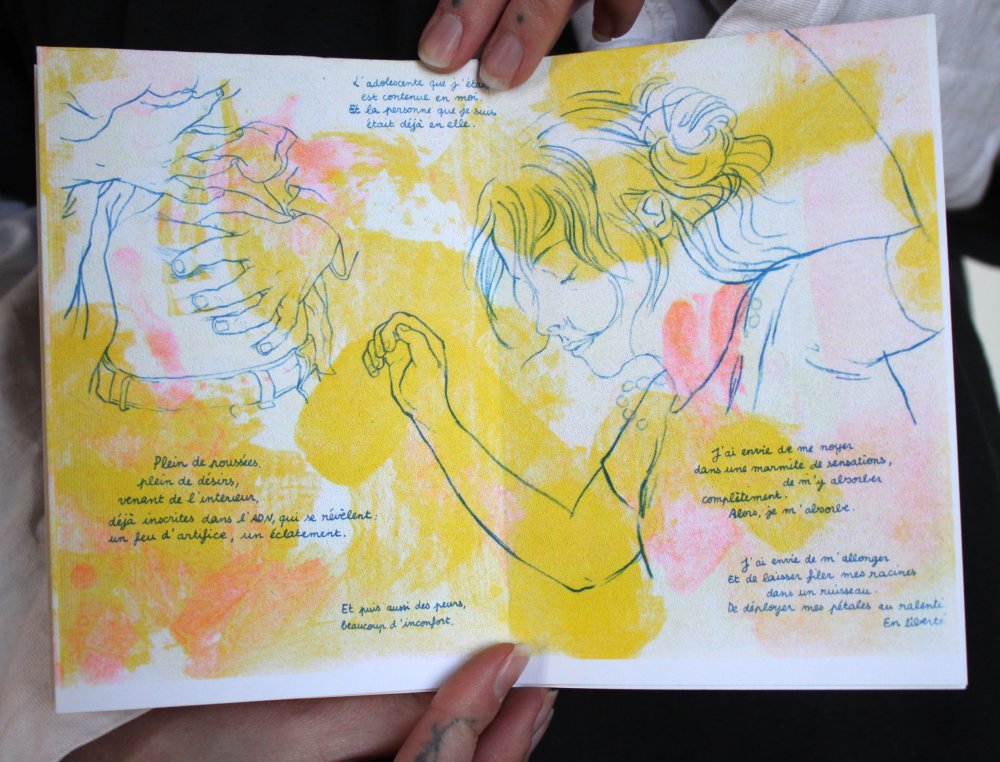 L'adolescente que j'étais
est contenue en moi.
Et la personne que je suis
était déjà en elle.
Plein de poussées,
plein de désirs,
venant de l'intérieur,
déjà inscrites dans l'ADN, qui se révèlent :
un feu d'artifice, un éclatement.
Et puis aussi des peurs,
beaucoup d'inconfort.
J'ai envie de me noyer
dans une marmite de sensations,
de m'y absorber
complètement.
Alors, je m'absorbe.
J'ai envie de m'allonger
Et de laisser filer mes racines
dans un ruisseau.
De déployer mes pétales au ralenti
En liberté